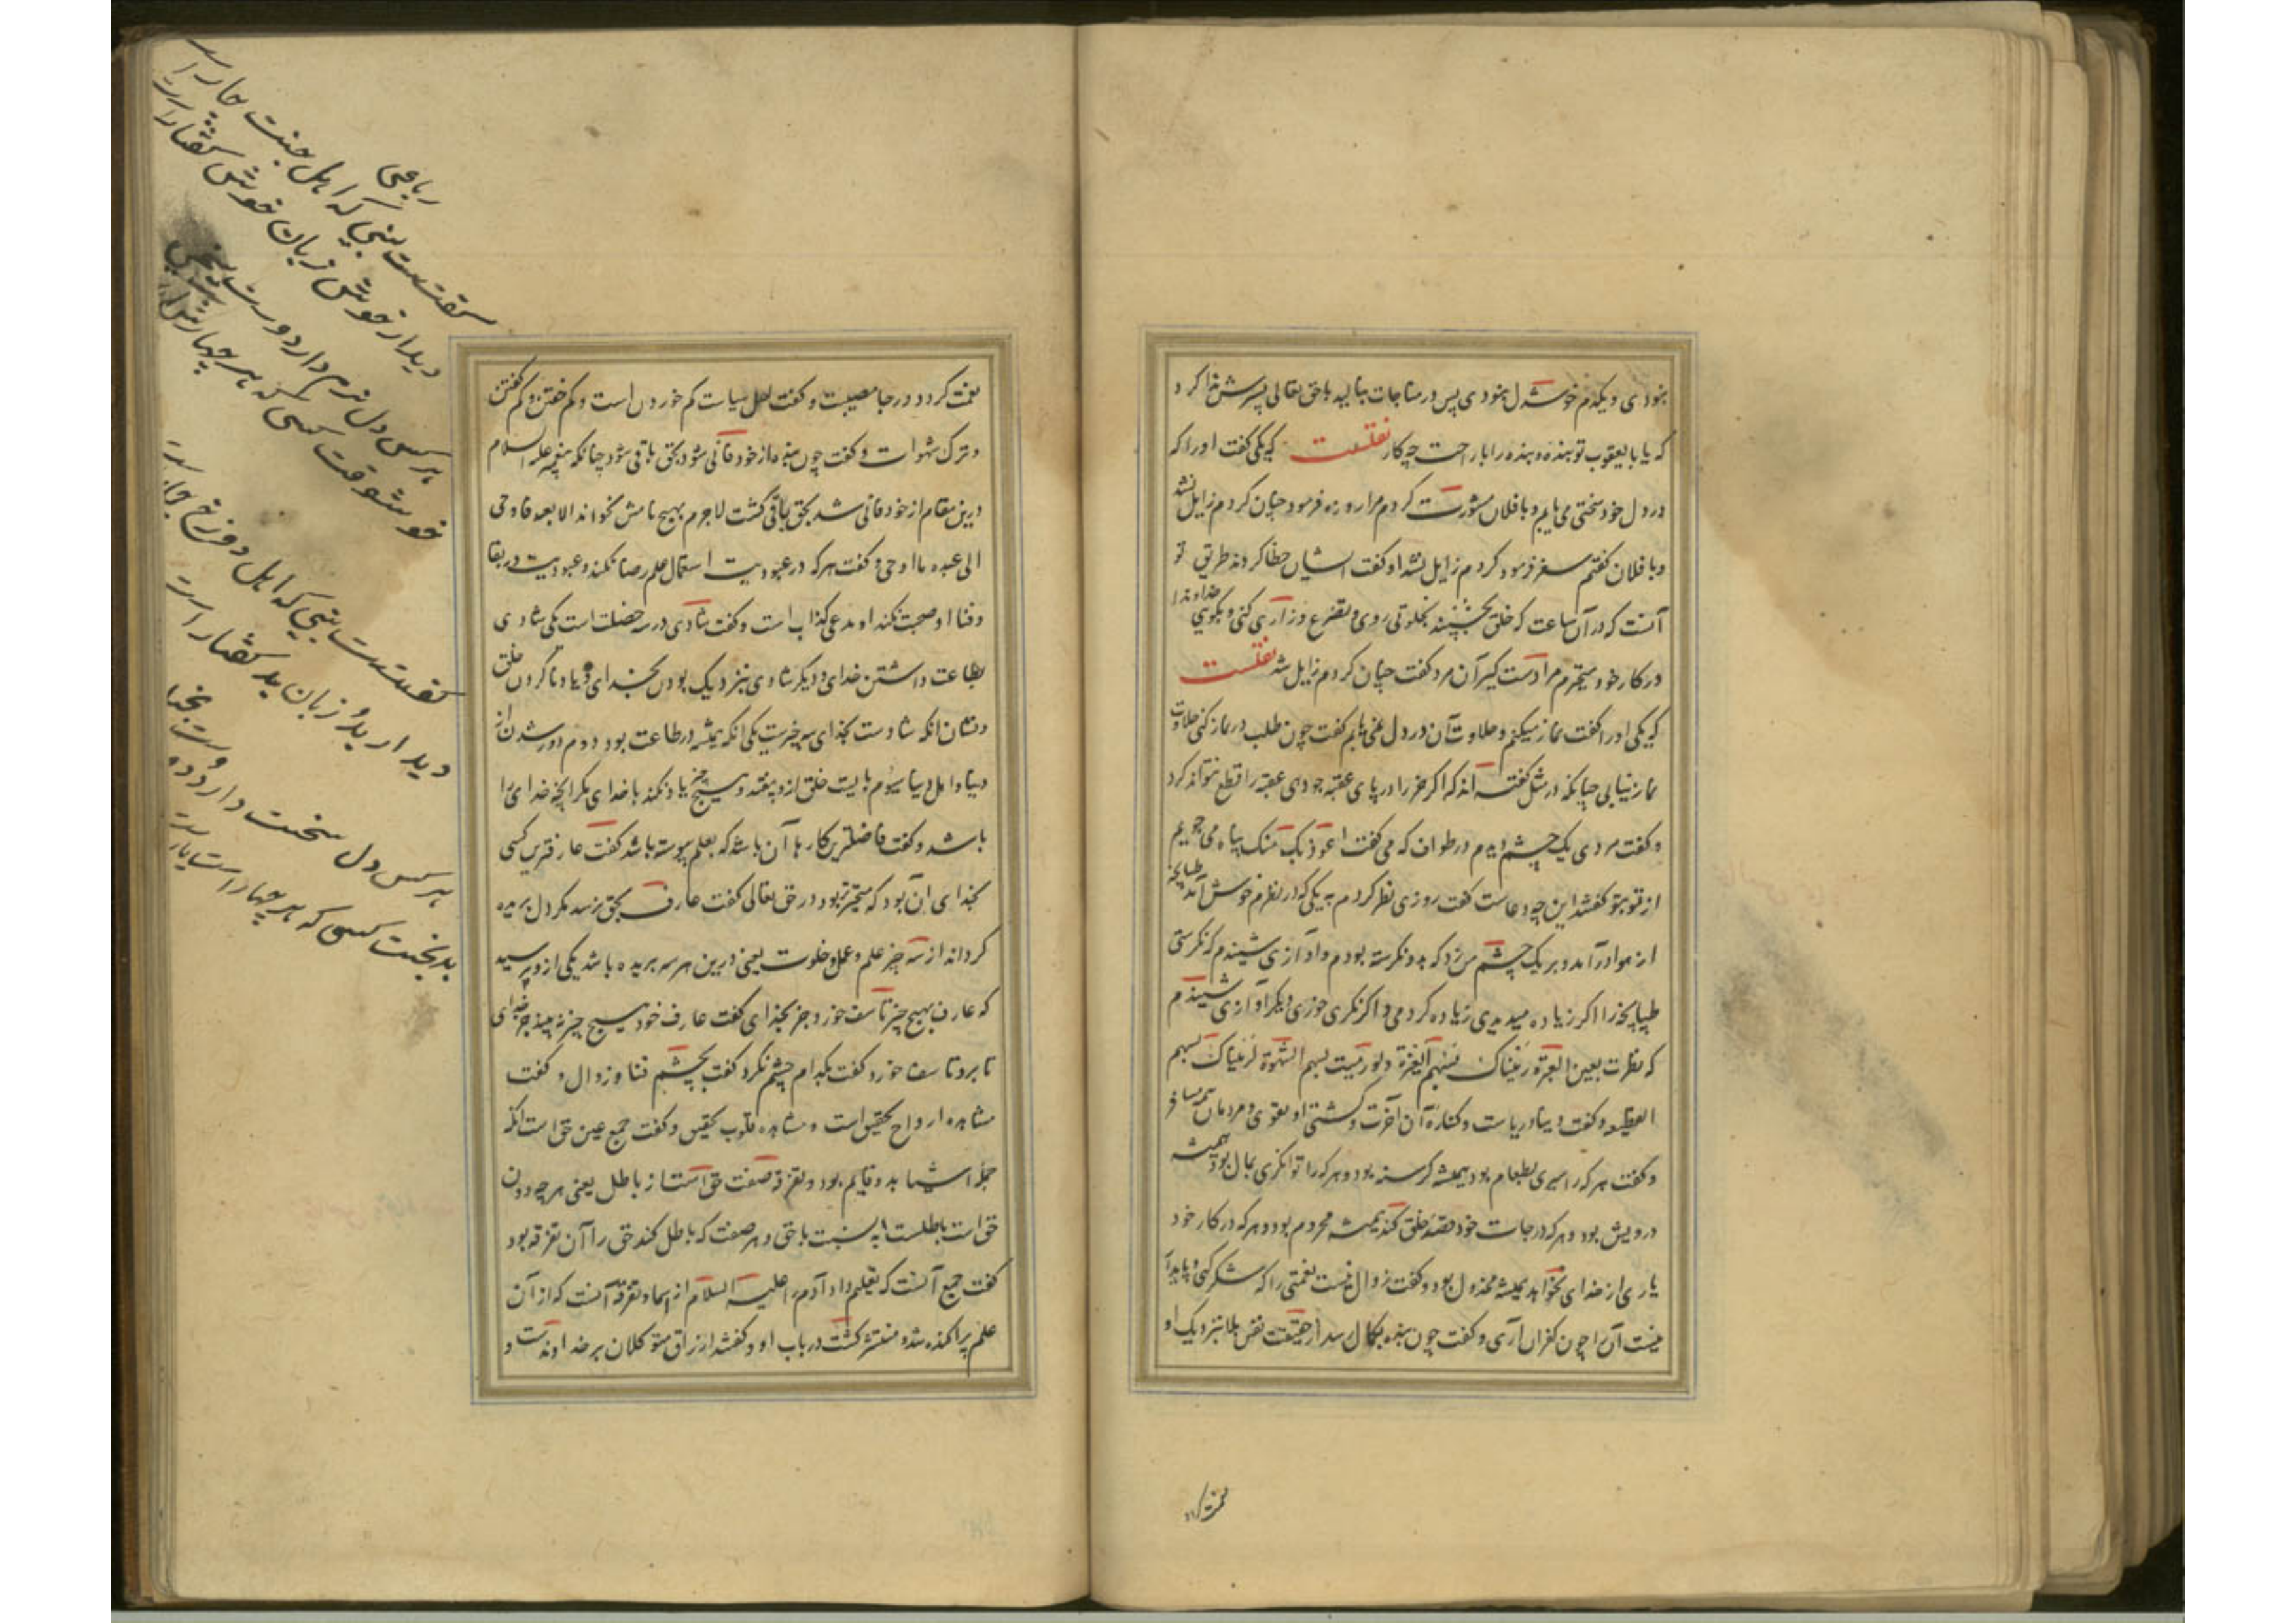 بنودی و یکدم خوشدل بنودی پس در مناجات بنالید با حق تعالی بسرش ندا کرد
که یا با یعقوب تو بنده و بنده را با راحت چه کار نقلست که یکی گفت او را که
در دل خود سختی می یابم و با فلان مشورت کردم مرا روزه فرمود چنان کردم زایل نشد
و با فلان گفتم سفر فرمود کردم زایل نشد او گفت ایشان خطا کردند طریق تو
آنست که در آن ساعت که خلق بخسبند بخلوتی روی و تضرع و زاری کنی و بگویی خداوندا
در کار خود متحیرم مرا دست گیر آن مرد گفت چنان کردم زایل شد نقلست
که یکی او را گفت نماز میکنم و حلاوت آن در دل نمی یابم گفت چون طلب در نماز کنی حلاوت
نماز نیابی چنانکه در مثل گفته اند که اگر خر را در پای عقبه جو دهی عقبه را قطع نتواند کرد
و گفت مردی یک چشم دیدم در طواف که می گفت اعوذ بک منک پناه می جویم
از تو بتو گفتند این چه دعاست گفت روزی نظر کردم به یکی که در نظرم خوش آمد طپانچه
از هوا درآمد و بر یک چشم من زد که بدو نگرسته بودم و آوازی شنیدم که نگرستی
طپانچه را اگر زیاده میدیدی زیاده کردمی و اگر نگری خوری دیگر آوازی شنیدم
که نظرت بعین العبرة رمیناک بسهم الغرة ولو رمیت بسهم الشهوة لرمیناک بسهم
القطیعه و گفت دنیا دریاست و کناره آن آخرت و کشتی او تقوی و مردمان همه مسافر
و گفت هر که را سیری بطعام بود همیشه گرسنه بود و هر که را توانگری بمال بود همیشه
درویش بود و هر که در حاجات خود قصد خلق کند همیشه محروم بود و هر که در کار خود
یاری از خدای نخواهد همیشه مخذول بود و گفت زوال نیست نعمتی را که شکر کنی و پایدار
نیست آن را چون کفران آری و گفت چون بنده بکمال رسد از حقیقت نفس بلا بنزدیک او
نعمت
نعمت گردد و رجا مصیبت و گفت اصل سیاست کم خوردن است و کم خفتن و کم گفتن
و ترک شهوات و گفت چون بنده از خود فانی شود بحق باقی شود چنانکه پیغمبر علیه السلام
درین مقام از خود فانی شد بحق باقی گشت لاجرم بهیچ نامش نخواند الا بعبد فاوحی
الی عبده ما اوحی و گفت هر که در عبودیت استعمال علم رضا نکند و عبودیت در بقا
و فنا او صحبت نکند او مدعی کذاب است و گفت شادی در سه خصلت است یکی شادی
بطاعت داشتن خدای و دیگر شادی بنزدیک بودن بخدای و یاد ناکردن خلق
و نشان آنکه شادست بخدای سه چیزست یکی آنکه همیشه در طاعت بود دوم دور شدن از
دنیا و اهل دنیا سیوم بایست خلق ازو بیفتد و هیچ چیز یاد نکند با خدای مگر آنچه خدای را
باشد و گفت فاضلترین کارها آن باشد که بعلم پیوسته باشد گفت عارفترین کسی
بخدای آن بود که متحیرتر بود در حق تعالی گفت عارف بحق نرسد مگر دل بریده
گرداند از سه چیز علم و عمل و خلوت یعنی درین هر سه بریده باشد یکی ازو پرسید
که عارف بهیچ چیز تاسف خورد جز بخدای گفت عارف خود هیچ چیز نه بیند جز خدای
تا برو تاسف خورد گفت بکدام چشم نگرد گفت بچشم فنا و زوال و گفت
مشاهده ارواح تحقیق است و مشاهده قلوب تحقیق و گفت جمع عین حق است آنکه
جمله اشیا بدو قایم بود و تفرقه صفت حق است از باطل یعنی هر چه دون
حق است باطلست به نسبت با حق و هر صفت که باطل کند حق را آن تفرقه بود
گفت جمع آنست که تعلیم داد آدم را علیه السلام از اسما و تفرقه آنست که از آن
علم پراکنده شد و منتشر گشت در باب او و گفتند ارزاق متوکلان بر خداوندست و
رباعی
گفتست نبی که اهل جنت چار است
دیدار خوش زبان خوش گفتار است
هر کس دل نرم دارد و دست
خوشوقت کسی که هر چهارش
گفتست نبی که اهل دوزخ چار است
دیدار بد و زبان بد گفتار است
هر کس دل سخت دارد و دست
بدبخت کسی که هر چهار است یار